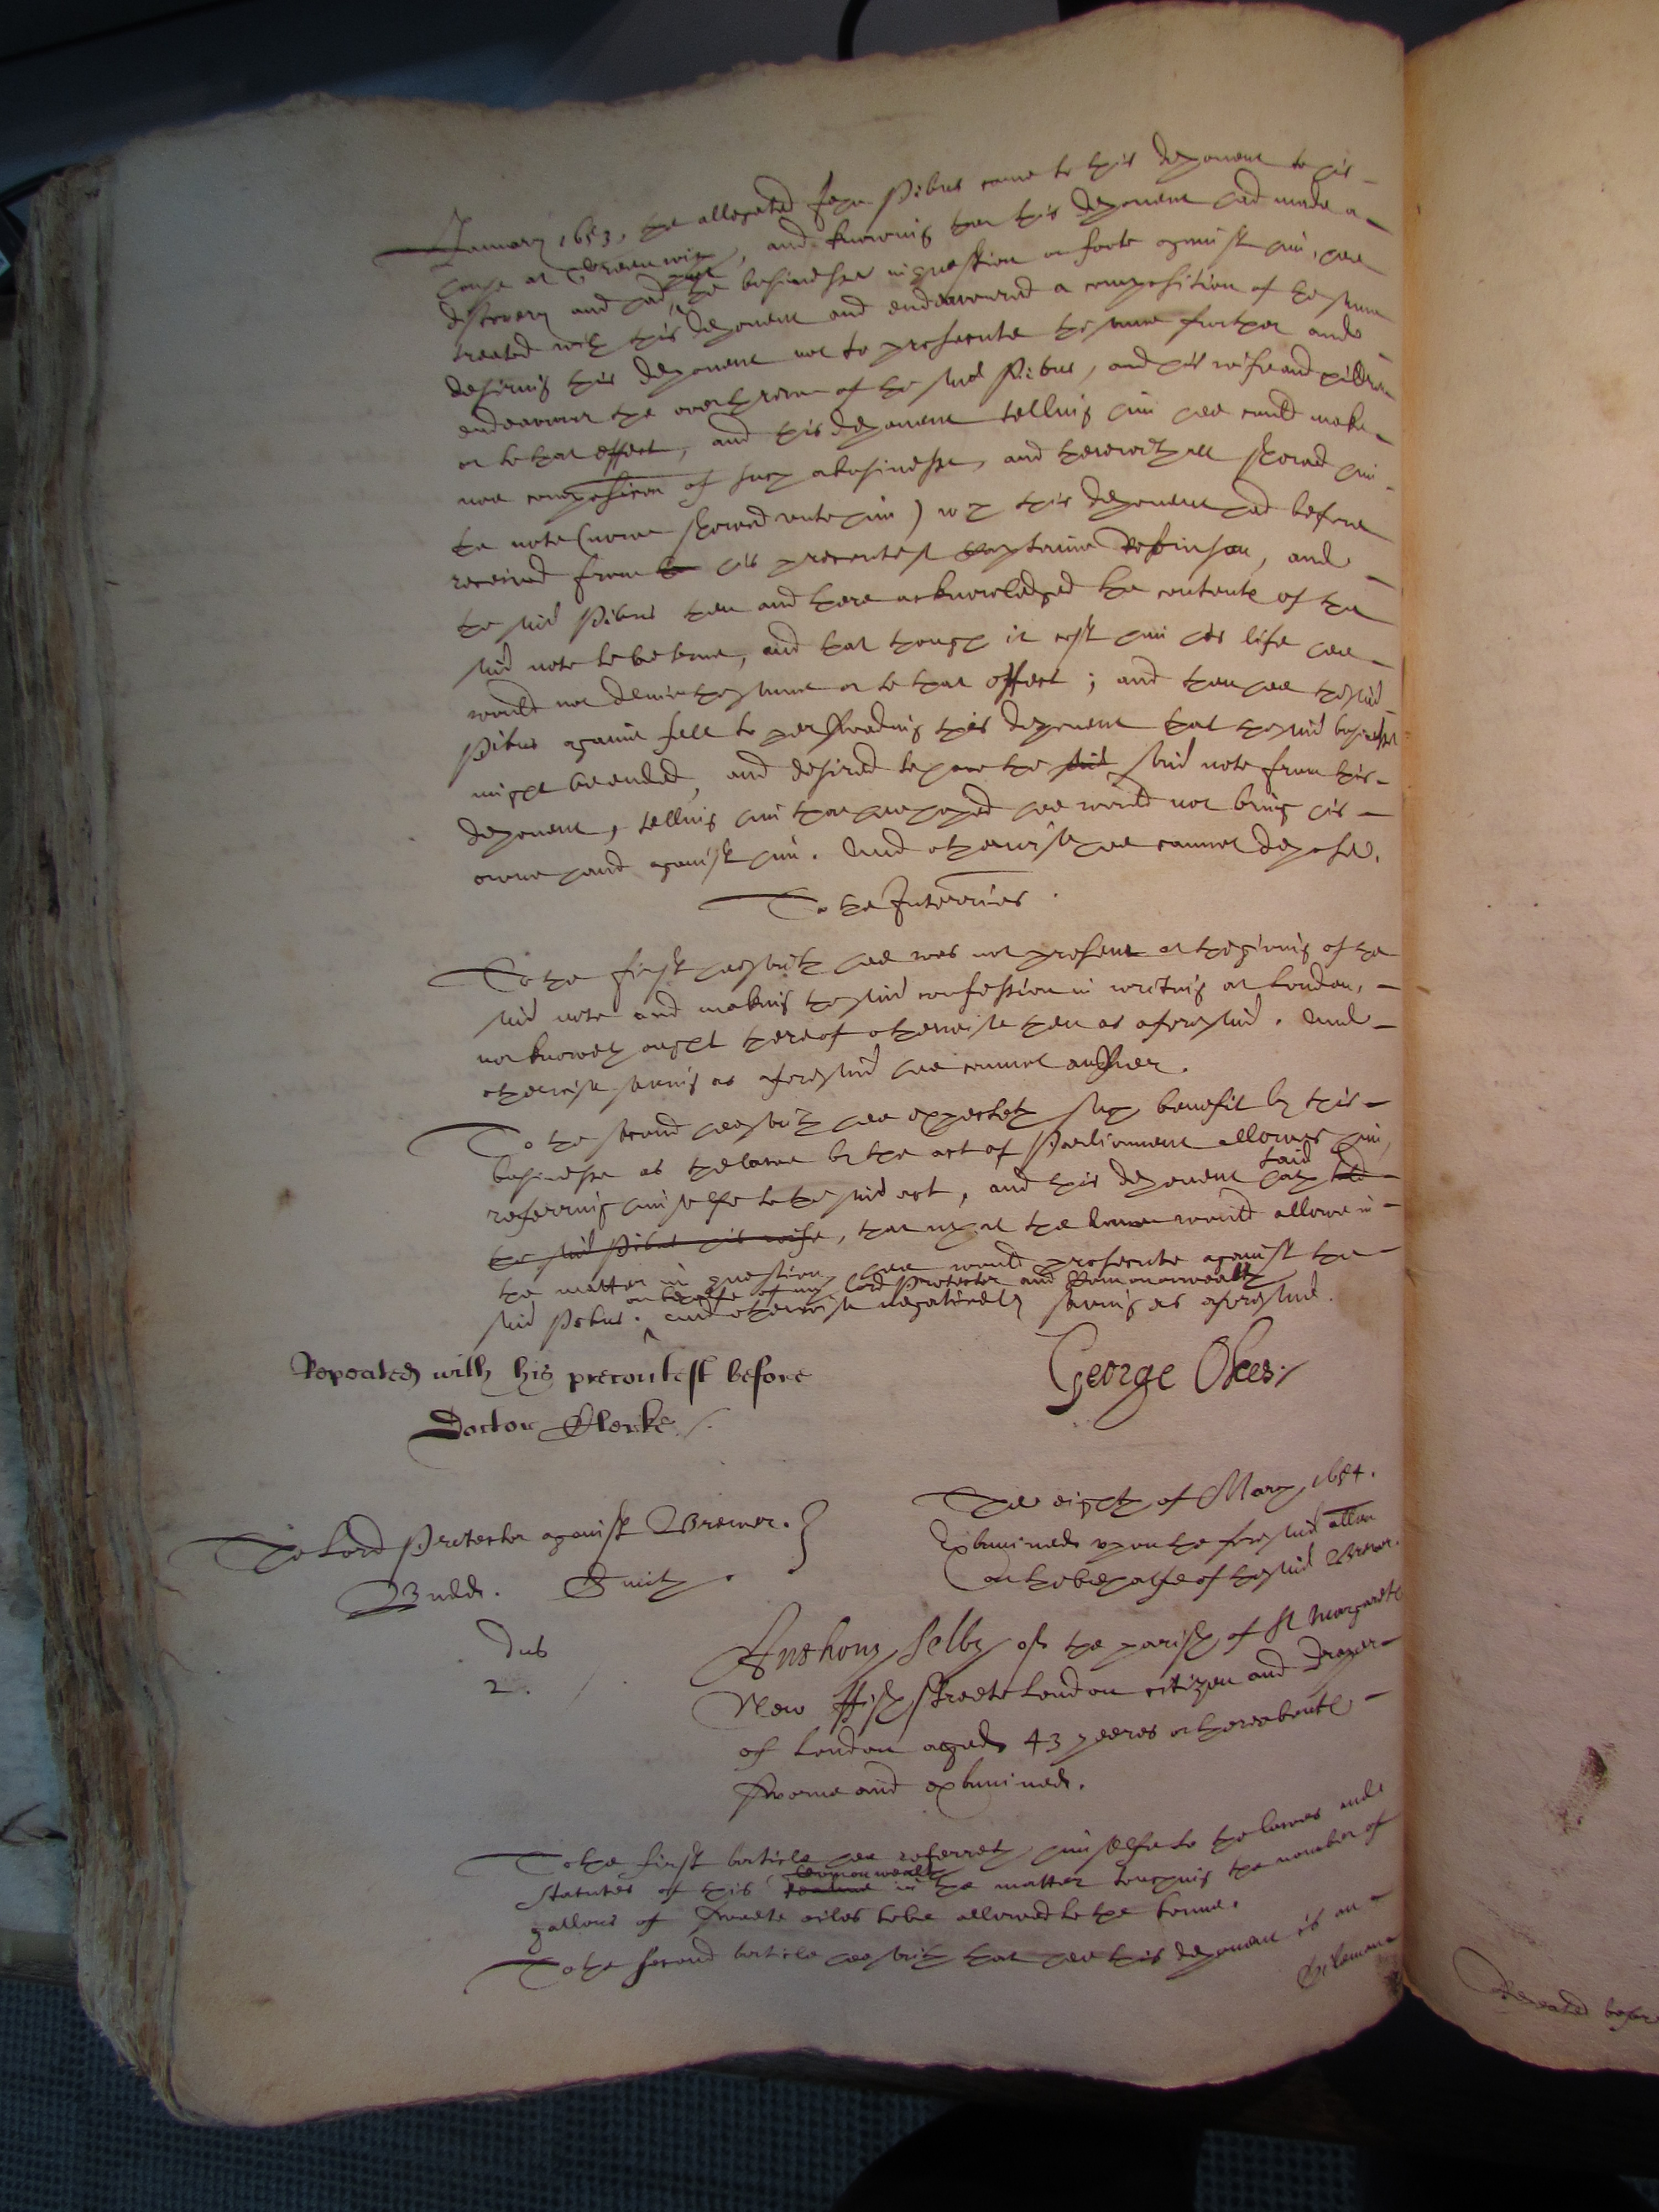 January 1653, the allegated John Pibus came to this deponent to his
house at Greenwich, and knowing that this deponent had made a
discovery and had put the businesse in question on foote against him, hee
treated with this deponent and endeavoured a composition of the same
desiring this deponent not to prosecute the same further and
endeavour the overthrow of the said Pibus, and his wife and children
or to that effect, and this deponent telling him hee could make
noe composicon of such a businesse, and therewithall shewed him
the note (nowe shewed unto him) wch this deponent had before
received from his precontest Captaine Robinson, and
the said Pibus then and there acknowledged the contents of the
said note to be true, and that though it cost him his life hee
would not denie the same or to that effect; and then hee the said
Pibus againe fell to perswading this deponent that the said businesse
might be ended, and desired to have the said said note from this
deponent, telling him that hee hoped hee would not bring his
owne hand against him. And otherwise hee cannot depose.
To the Interries.
To the first hee saith hee was not present at the giving of the
said note and making the said confession in writing at London,
nor knoweth ought thereof otherwise then as aforesaid. And
otherwise saving as aforesaid hee cannot answer.
To the second hee saith hee expecteth such benefit by this
businesse as the lawe by the act of Parliament allowes him,
referring himselfe to the said act, and this deponent hath said told
the said Pibus his wife, that what the lawe would allowe in
the matter in question, hee would prosecute against the
on behalfe of my Lord Protector and Comonwealth
said Pibus. And otherwise negatively saving as aforesaid.
Repeated with his precontest before
Doctor Clerke./
George Okes./
The eighth of March 1654.
The Lord Protector against Brewer.
Examined upon the foresaid allon
on the behalfe of the said Brewer.
Budd. Smith.
dus
2.
Anthony Selby of the parish of St Margarets
New Fish streete London citizen and Draper
of London aged 43 yeeres or thereabouts
sworne and examined.
To the first article hee referreth himselfe to the lawes and
Comonwealth
statutes of this in the matter touching the number of
gallons of sweete oiles to be allowed to the tonne.
To the second article hee saith that hee this deponent is an
Oileman
Repeated before